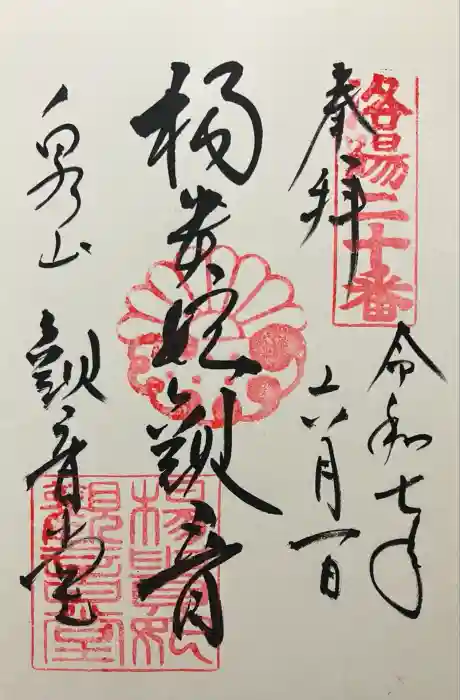 洛陽二十番
奉拝
令和七年
六月一日
楊貴妃観音
泉山 観音堂
楊貴妃
観音堂